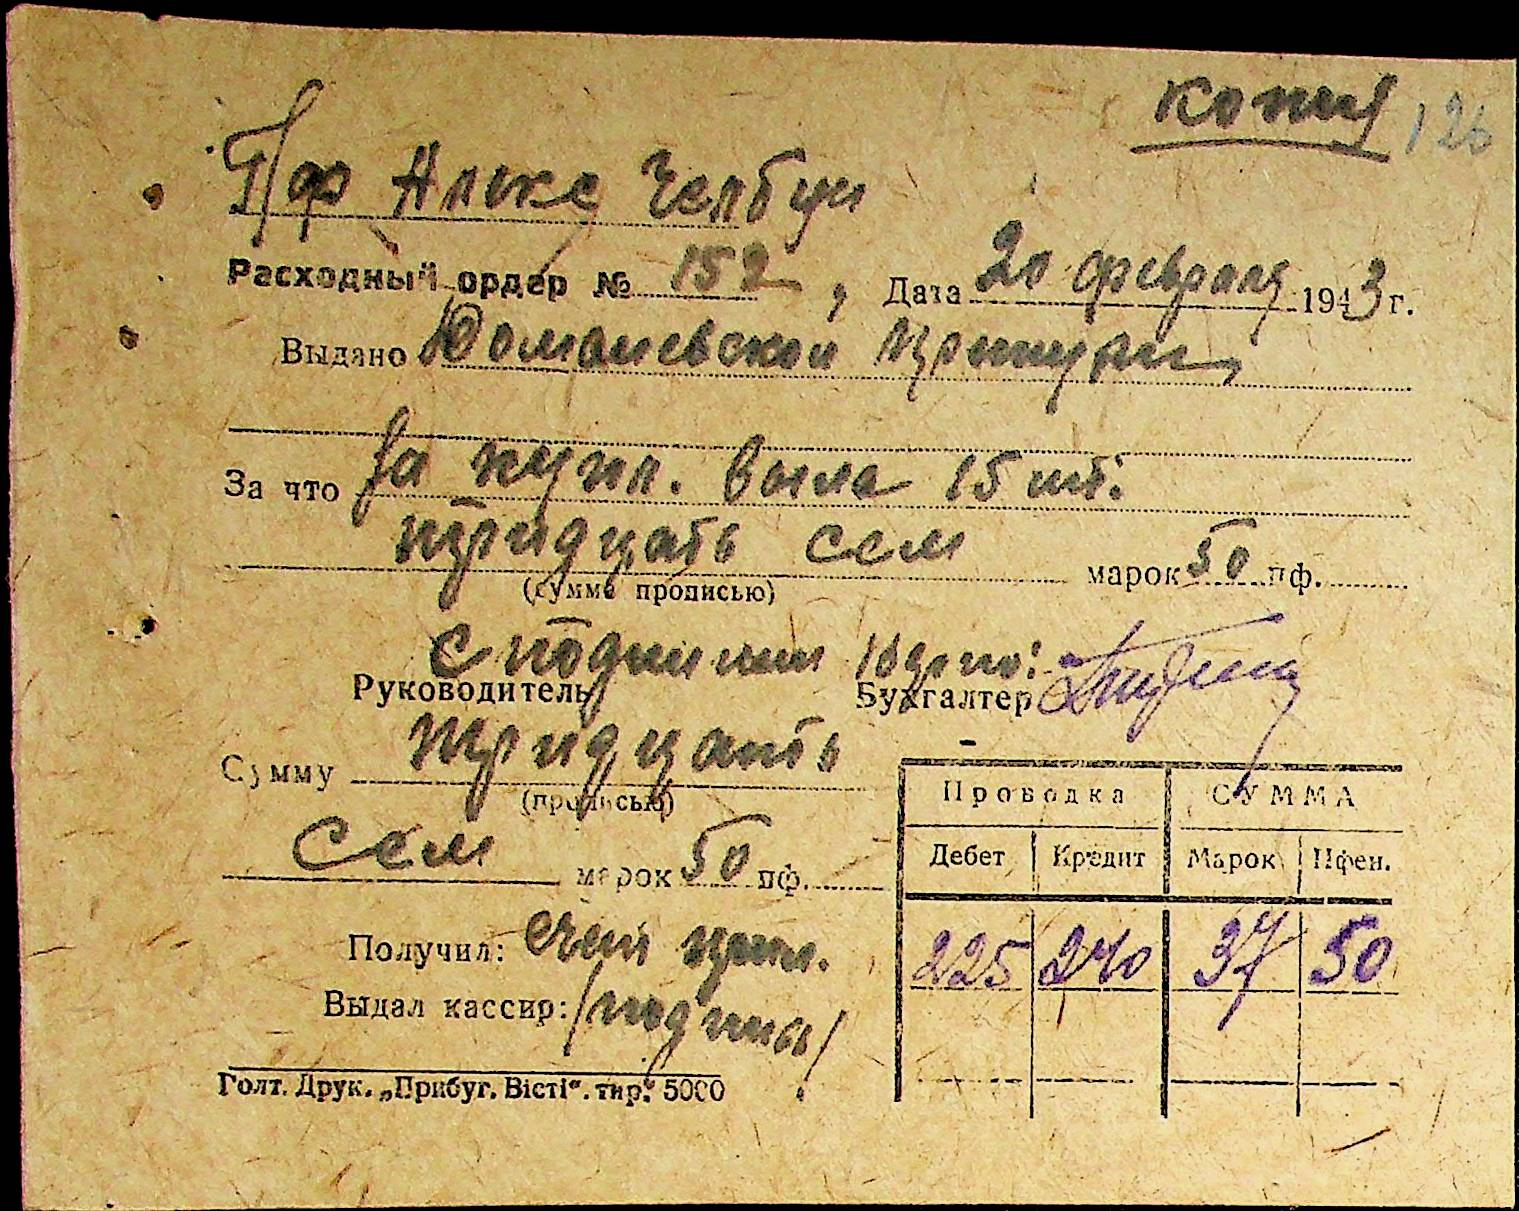 копия 126
П/ф Алекс Челбуи
Расходный ордер № 152, Дата 20 февраля 1943 г.
Выдано Доманевской примурии
За что За купл. вила 15 шт.
тридцать сем марок 50 пф.
(сумма прописью)
с подлинным верно:
Руководитель Бухгалтер
Сумму тридцать
(прописью)
сем марок 50 пф.
Проводка СУММА
Дебет Кредит Марок Пфен.
225 240 37 50
Получил:
Выдал кассир: /подпись/
Голт. Друк. „Прибуг. Вісті“. тир. 5000